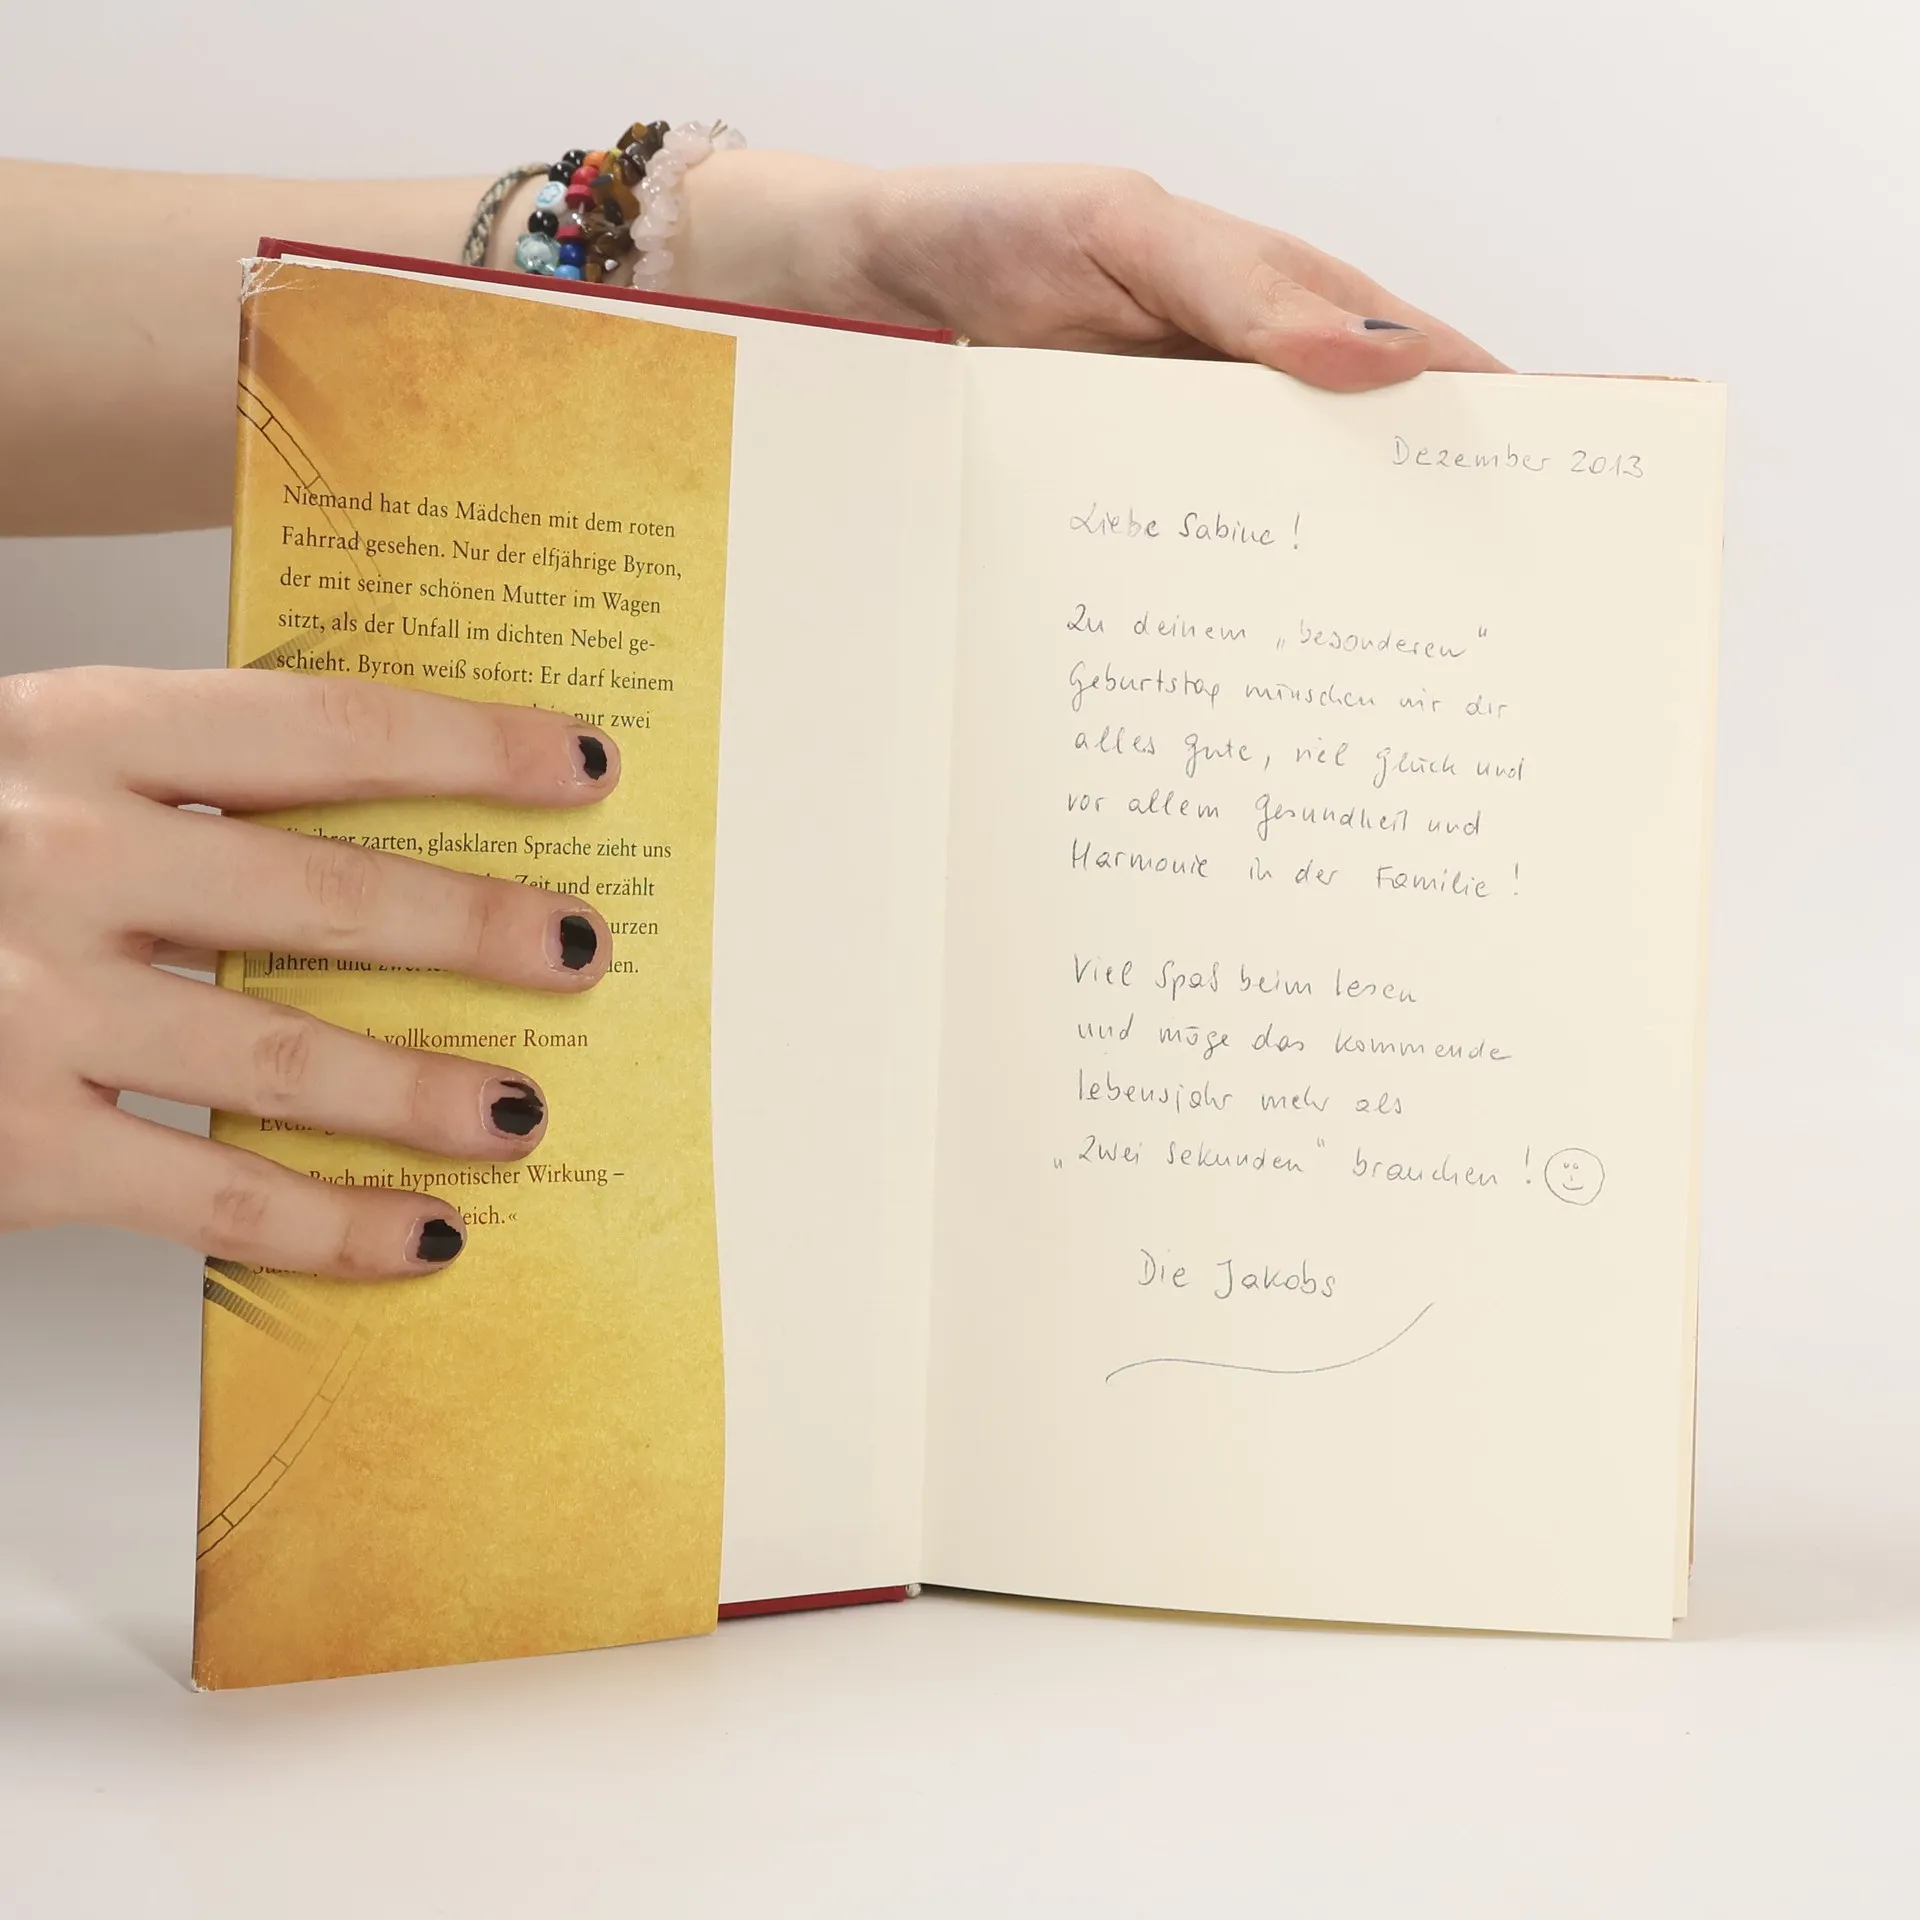 Niemand hat das Mädchen mit dem roten
Fahrrad gesehen. Nur der elfjährige Byron,
der mit seiner schönen Mutter im Wagen
sitzt, als der Unfall im dichten Nebel ge-
schieht. Byron weiß sofort: Er darf keinem
nur zwei
ihrer zarten, glasklaren Sprache zieht uns
Zeit und erzählt
Jahren und
vollkommener Roman
Buch mit hypnotischer Wirkung –
Dezember 2013
Liebe Sabine !
Zu deinem „besonderen“
Geburtstag wünschen wir dir
alles gute, viel glück und
vor allem Gesundheit und
Harmonie in der Familie !
Viel Spaß beim lesen
und möge das kommende
lebensjahr mehr als
„zwei Sekunden“ brauchen !
Die Jakobs